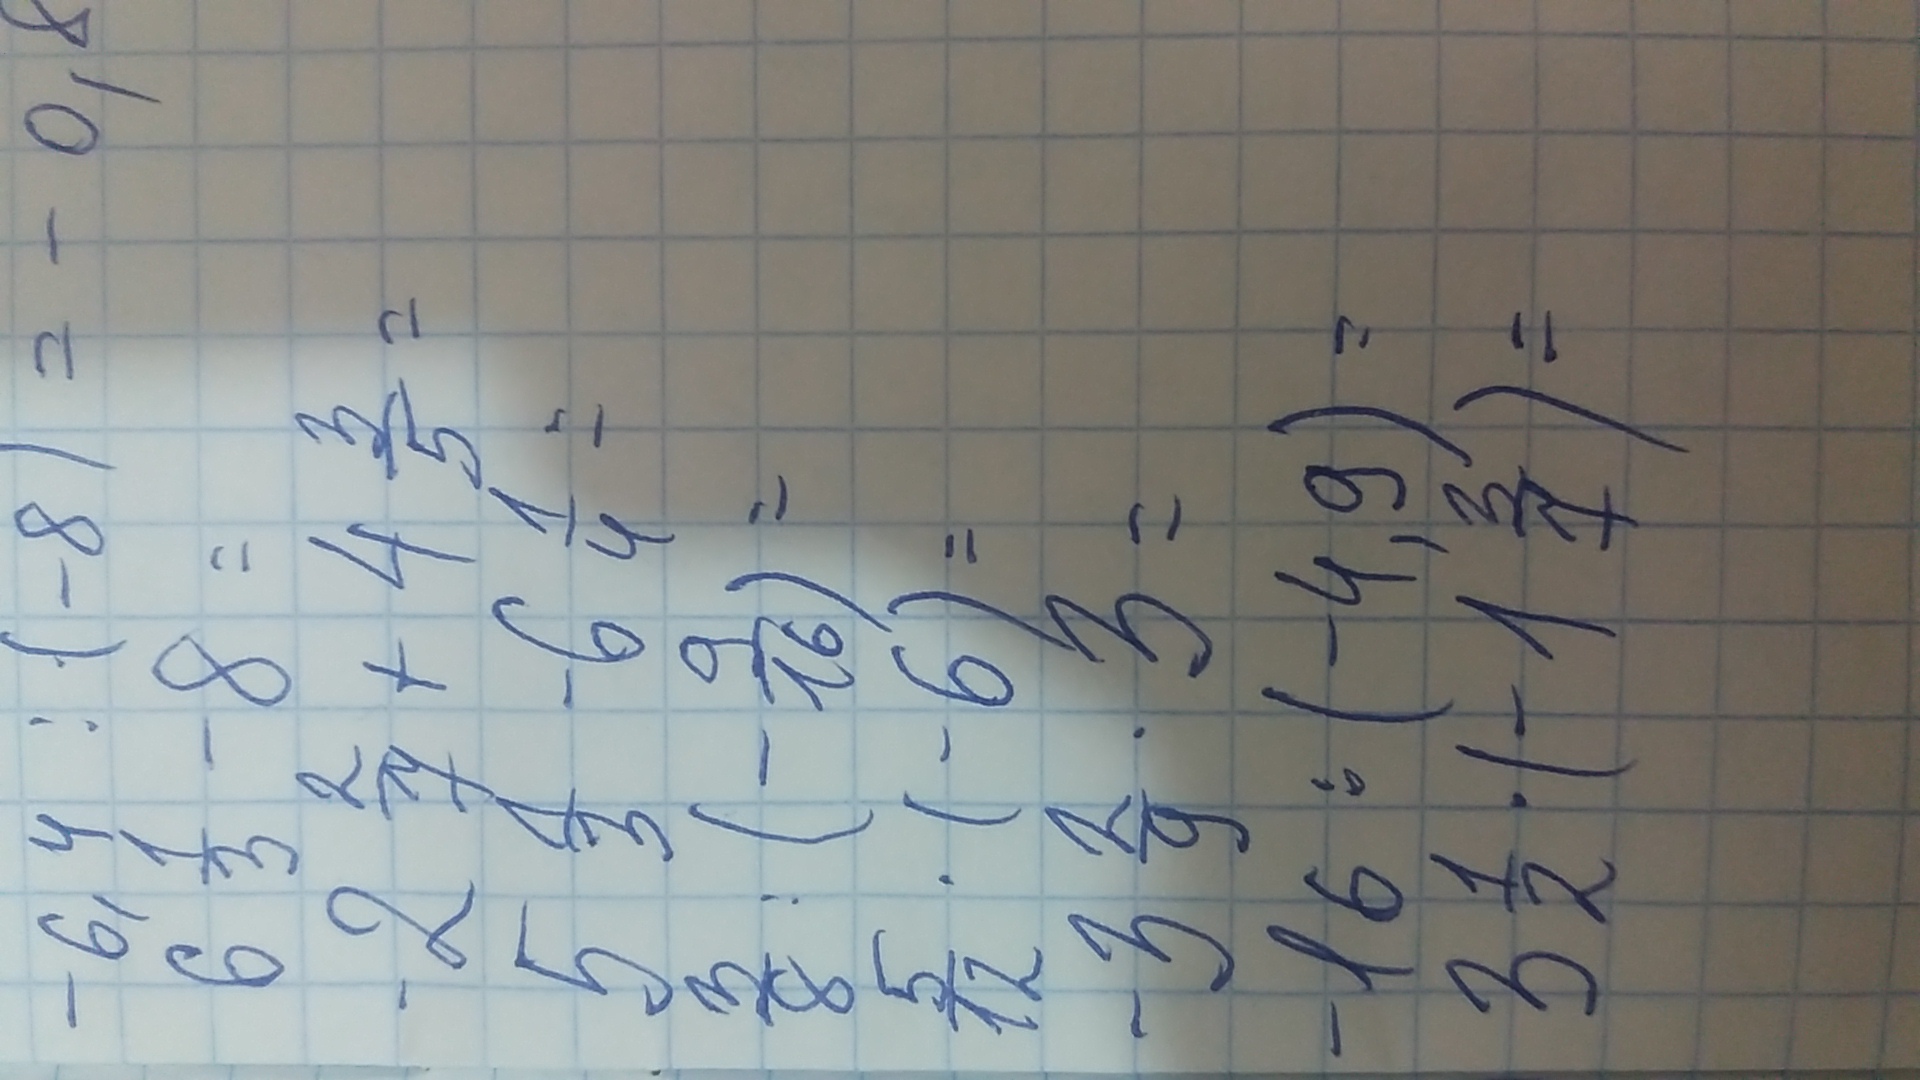 -6,4 : (-8) = -0,8
6 1/3 - 8 =
-2 2/7 + 4 3/5 =
5 1/3 - 6 1/4 =
3/8 : (-9/16) =
5/12 · (-6) =
-3 2/9 · 3 =
-16 : (-4,9) =
3 1/2 · (-1 3/7) =